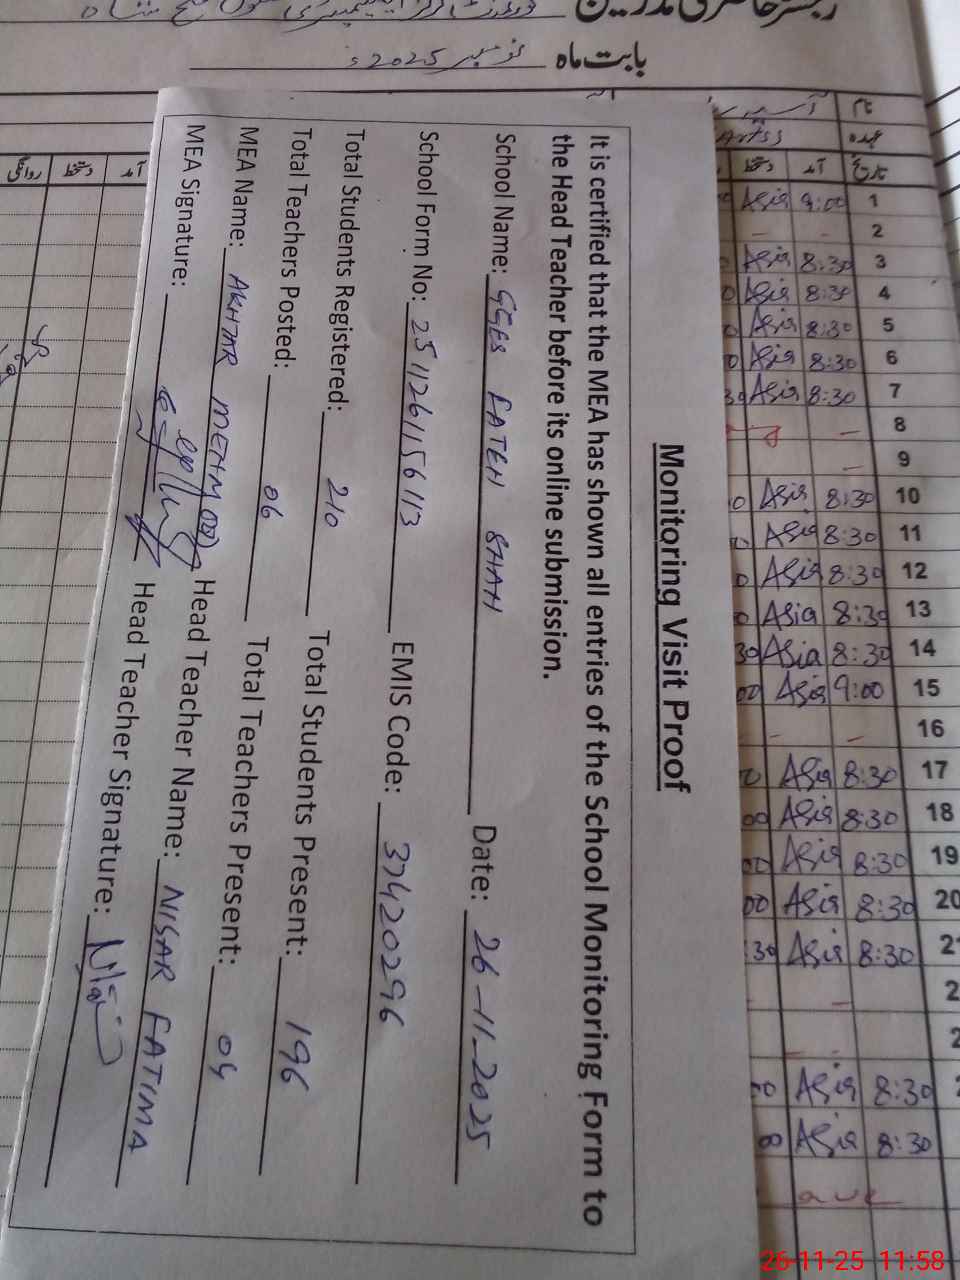 رجسٹر حاضری مدرسین
بابت ماہ نومبر 2025ء
Monitoring Visit Proof
It is certified that the MEA has shown all entries of the School Monitoring Form to
the Head Teacher before its online submission.
School Name: GGES FATEH SHAH Date: 26-11-2025
School Form No: 2511261156113 EMIS Code: 37420296
Total Students Registered: 210 Total Students Present: 196
Total Teachers Posted: 06 Total Teachers Present: 04
MEA Name: AKHTAR MEHMOOD Head Teacher Name: NISAR FATIMA
MEA Signature: Head Teacher Signature:
نام
عہدہ
تاریخ آمد دستخط
آمد دستخط روانگی
1 9:00 Asia
2 - -
3 8:30 Asia
4 8:30 Asia
5 8:30 Asia
6 8:30 Asia
7 8:30 Asia
8 -
9 -
10 8:30 Asia
11 8:30 Asia
12 8:30 Asia
13 8:30 Asia
14 8:30 Asia
15 9:00 Asia
16 - -
17 8:30 Asia
18 8:30 Asia
19 8:30 Asia
20 8:30 Asia
8:30 Asia
8:30 Asia
8:30 Asia
26-11-25 11:58